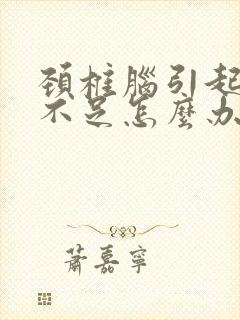 頚柱腦引起
不足怎麼办
蕭嘉寧